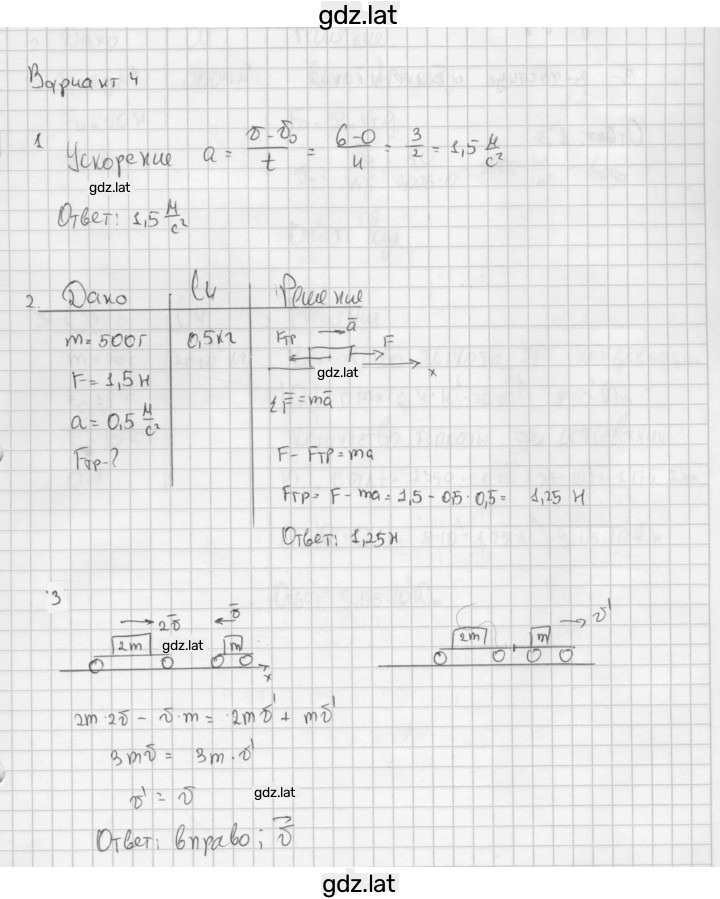 gdz.lat
Вариант 4
1 Ускорение a = (v - v₀)/t = (6-0)/4 = 3/2 = 1,5 м/с²
gdz.lat
Ответ: 1,5 м/с²
2. Дано Си Решение
m = 500г 0,5кг Fтр a⃗ F x
gdz.lat
F = 1,5 Н ΣF⃗ = ma⃗
a = 0,5 м/с²
Fтр - ? F - Fтр = ma
Fтр = F - ma = 1,5 - 0,5 · 0,5 = 1,25 Н
Ответ: 1,25Н
3
2v⃗ v⃗ v'
2m gdz.lat m x 2m m
2m·2v - v·m = 2mv' + mv'
3mv = 3m·v'
v' = v gdz.lat
Ответ: вправо; v⃗
gdz.lat